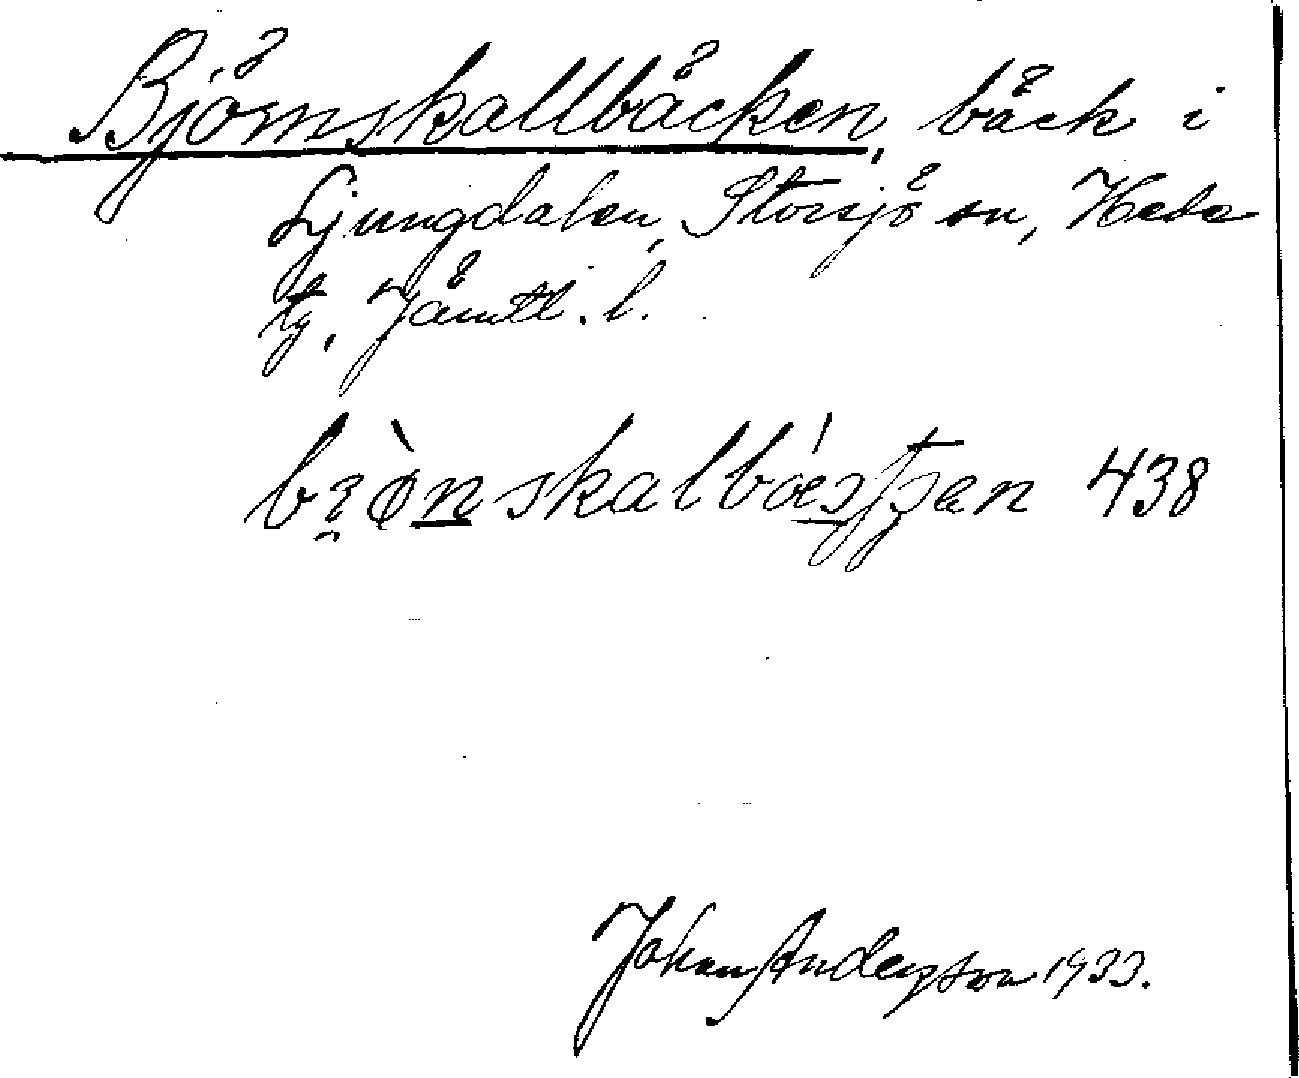 Björnskallbäcken, bäck i
Ljungdalen, Storsjö sn, Hede
tg, Jämtl. l.
438
Johan Andersson 1933.